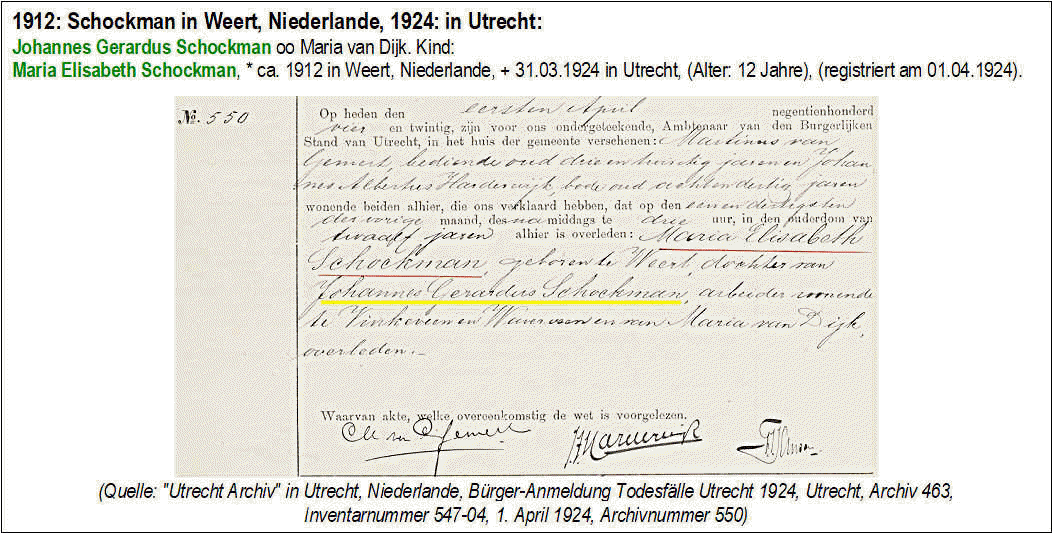 1912: Schockman in Weert, Niederlande, 1924: in Utrecht:
Johannes Gerardus Schockman oo Maria van Dijk. Kind:
Maria Elisabeth Schockman, * ca. 1912 in Weert, Niederlande, + 31.03.1924 in Utrecht, (Alter: 12 Jahre), (registriert am 01.04.1924).
No. 550
Op heden den eersten April negentienhonderd
vier en twintig, zijn voor ons ondergeteekende, Ambtenaar van den Burgerlijken
Stand van Utrecht, in het huis der gemeente verschenen: Martinus van
Gemert, bediende oud drie en twintig jaren en Johan
nes Albertus Harderwijk, bode oud acht en dertig jaren
wonende beiden alhier, die ons verklaard hebben, dat op den een en dertigsten
der vorige maand, des na middags te drie uur, in den ouderdom van
twaalf jaren alhier is overleden: Maria Elisabeth
Schockman, geboren te Weert, dochter van
Johannes Gerardus Schockman, arbeider wonende
te Vinkeveen en Waverveen en van Maria van Dijk,
overleden.-
Waarvan akte, welke overeenkomstig de wet is voorgelezen.
Gemert Harderwijk
(Quelle: "Utrecht Archiv" in Utrecht, Niederlande, Bürger-Anmeldung Todesfälle Utrecht 1924, Utrecht, Archiv 463,
Inventarnummer 547-04, 1. April 1924, Archivnummer 550)